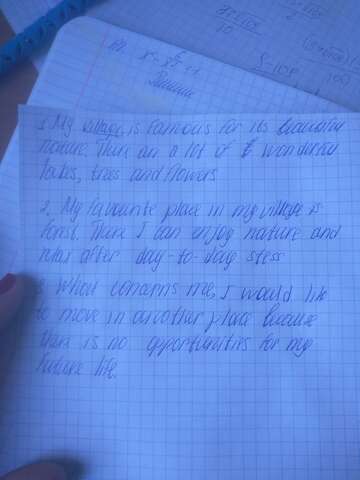 1. My village is famous for its beautiful
nature. There are a lot of wonderful
lakes, trees and flowers
2. My favourite place in my village is
forest. There I can enjoy nature and
relax after day-to-day stess
3. What conserns me, I would like
to move in another place because
there is no opportunities for my
future life.